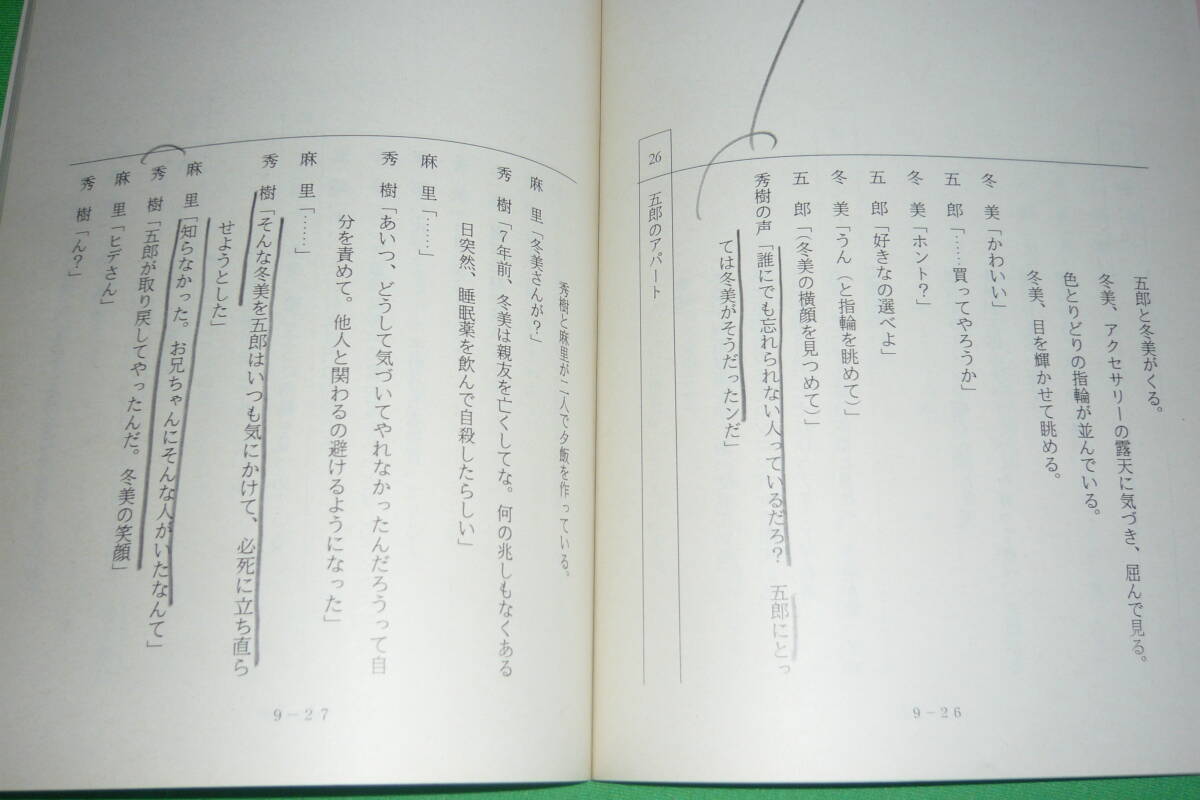 五郎と冬美がくる。
冬美、アクセサリーの露天に気づき、屈んで見る。
色とりどりの指輪が並んでいる。
冬美、目を輝かせて眺める。
冬　美「かわいい」
五　郎「……買ってやろうか」
冬　美「ホント？」
五　郎「好きなの選べよ」
冬　美「うん（と指輪を眺めて）」
五　郎「（冬美の横顔を見つめて）」
秀樹の声「誰にでも忘れられない人っているだろ？　五郎にとっ
ては冬美がそうだったンだ」
26　五郎のアパート
9－26
秀樹と麻里が二人で夕飯を作っている。
麻　里「冬美さんが？」
秀　樹「7年前、冬美は親友を亡くしてな。何の兆しもなくある
日突然、睡眠薬を飲んで自殺したらしい」
麻　里「……」
秀　樹「あいつ、どうして気づいてやれなかったんだろうって自
分を責めて。他人と関わるの避けるようになった」
麻　里「……」
秀　樹「そんな冬美を五郎はいつも気にかけて、必死に立ち直ら
せようとした」
麻　里「知らなかった。お兄ちゃんにそんな人がいたなんて」
秀　樹「五郎が取り戻してやったんだ。冬美の笑顔」
麻　里「ヒデさん」
秀　樹「ん？」
9－27